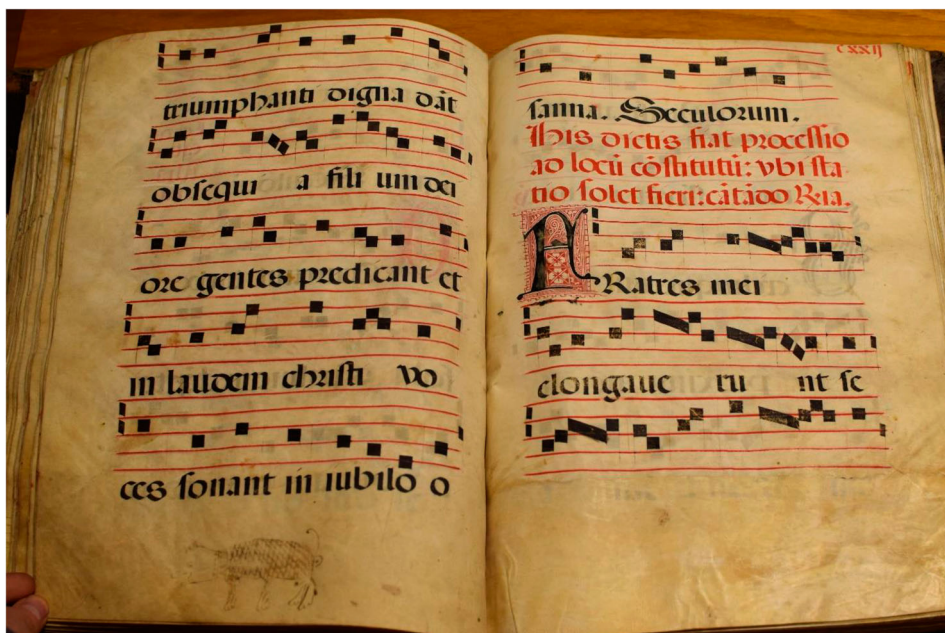 triumphanti digna dāt
obsequi a fili um dei
ore gentes predicant et
in laudem christi vo
ces sonant in iubilo o
cxxij
sanna. Seculorum.
His dictis fiat processio
ad locū cōstitutū: vbi sta
tio solet fieri: cātādo Ria.
FRatres mei
elongaue ru nt se